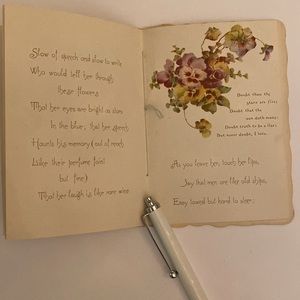 Slow of speech and slow to write
Who would tell her through
these flowers
That her eyes are bright as stars
In the blue; that her speech
Haunts his memory (out of reach
Like their perfume faint
but fine)
That her laugh is like rare wine.
Doubt thou the
stars are fire;
Doubt that the
sun doth move;
Doubt truth to be a liar;
But never doubt, I love.
As you leave her, touch her lips,
Say that men are like old ships,
Easy loved but hard to steer;